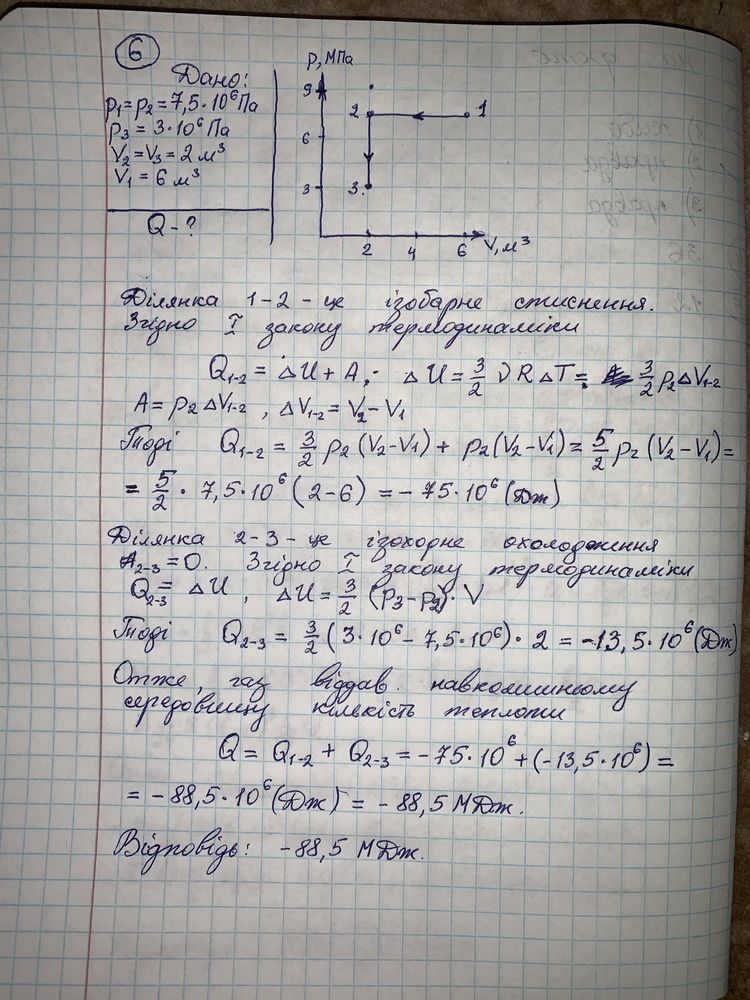 6
Дано:
p₁=p₂=7,5·10⁶Па
p₃=3·10⁶Па
V₂=V₃=2 м³
V₁=6 м³
Q-?
p, МПа
9
2 1
6
3 3
2 4 6 V, м³
Ділянка 1-2 - це ізобарне стиснення.
Згідно I закону термодинаміки
Q₁₋₂ = ΔU + A; ΔU = 3/2 νRΔT = 3/2 p₂ΔV₁₋₂
A = p₂ΔV₁₋₂, ΔV₁₋₂ = V₂-V₁
Тоді Q₁₋₂ = 3/2 p₂(V₂-V₁) + p₂(V₂-V₁) = 5/2 p₂(V₂-V₁) =
= 5/2 · 7,5·10⁶(2-6) = -75·10⁶ (Дж)
Ділянка 2-3 - це ізохорне охолодження
A₂₋₃=0. Згідно I закону термодинаміки
Q₂₋₃ = ΔU, ΔU = 3/2 (p₃-p₂)·V
Тоді Q₂₋₃ = 3/2 (3·10⁶ - 7,5·10⁶)·2 = -13,5·10⁶(Дж)
Отже, газ віддав навколишньому
середовищу кількість теплоти
Q = Q₁₋₂ + Q₂₋₃ = -75·10⁶ + (-13,5·10⁶) =
= -88,5·10⁶(Дж) = -88,5 МДж.
Відповідь: -88,5 МДж.